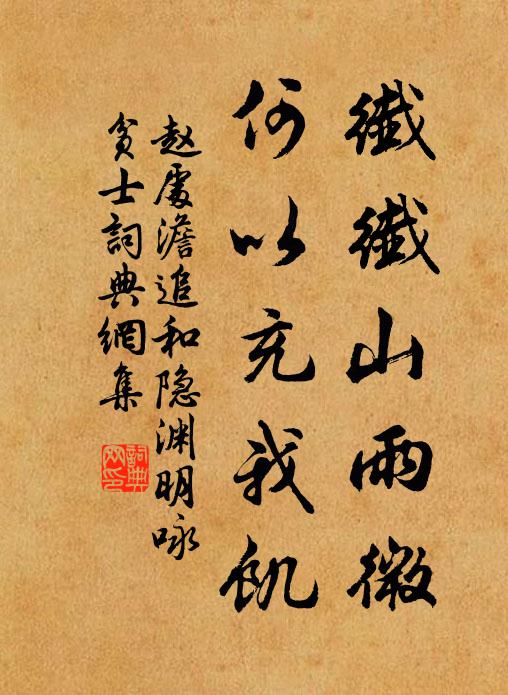 纖纖山雨微
何以充我飢
赵處澹追和隐渊明咏
貧士詞典網集
詞典網印